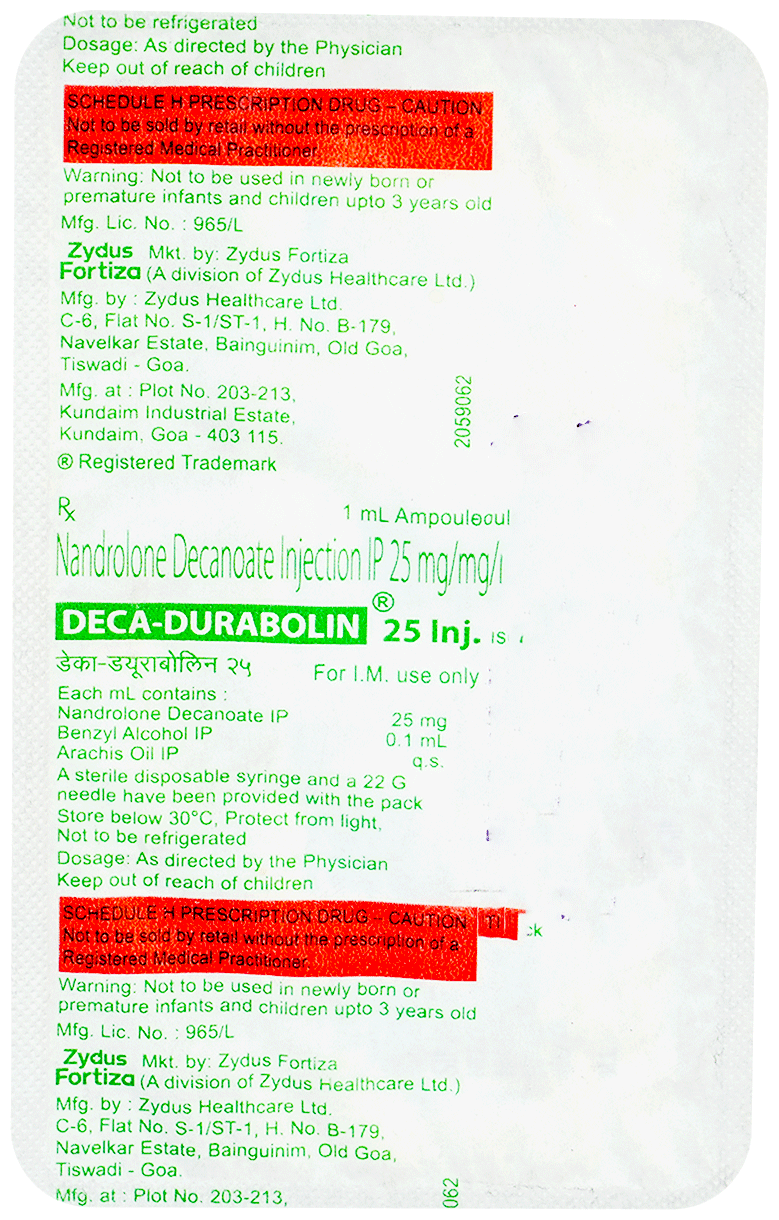 Not to be refrigerated
Dosage: As directed by the Physician
Keep out of reach of children
SCHEDULE H PRESCRIPTION DRUG – CAUTION
Not to be sold by retail without the prescription of a
Registered Medical Practitioner
Warning: Not to be used in newly born or
premature infants and children upto 3 years old
Mfg. Lic. No. : 965/L
Zydus Fortiza Mkt. by: Zydus Fortiza
(A division of Zydus Healthcare Ltd.)
Mfg. by : Zydus Healthcare Ltd.
C-6, Flat No. S-1/ST-1, H. No. B-179,
Navelkar Estate, Bainguinim, Old Goa,
Tiswadi - Goa.
Mfg. at : Plot No. 203-213,
Kundaim Industrial Estate,
Kundaim, Goa - 403 115.
2059062
® Registered Trademark
Rx 1 mL Ampouleoul
Nandrolone Decanoate Injection IP 25 mg/mg/
DECA-DURABOLIN® 25 Inj. IS
डेका-ड्यूराबोलिन २५ For I.M. use only
Each mL contains :
Nandrolone Decanoate IP 25 mg
Benzyl Alcohol IP 0.1 mL
Arachis Oil IP q.s.
A sterile disposable syringe and a 22 G
needle have been provided with the pack
Store below 30°C, Protect from light,
Not to be refrigerated
Dosage: As directed by the Physician
Keep out of reach of children
SCHEDULE H PRESCRIPTION DRUG – CAUTION TI
Not to be sold by retail without the prescription of a ck
Registered Medical Practitioner
Warning: Not to be used in newly born or
premature infants and children upto 3 years old
Mfg. Lic. No. : 965/L
Zydus Fortiza Mkt. by: Zydus Fortiza
(A division of Zydus Healthcare Ltd.)
Mfg. by : Zydus Healthcare Ltd.
C-6, Flat No. S-1/ST-1, H. No. B-179,
Navelkar Estate, Bainguinim, Old Goa,
Tiswadi - Goa.
Mfg. at : Plot No. 203-213,
062